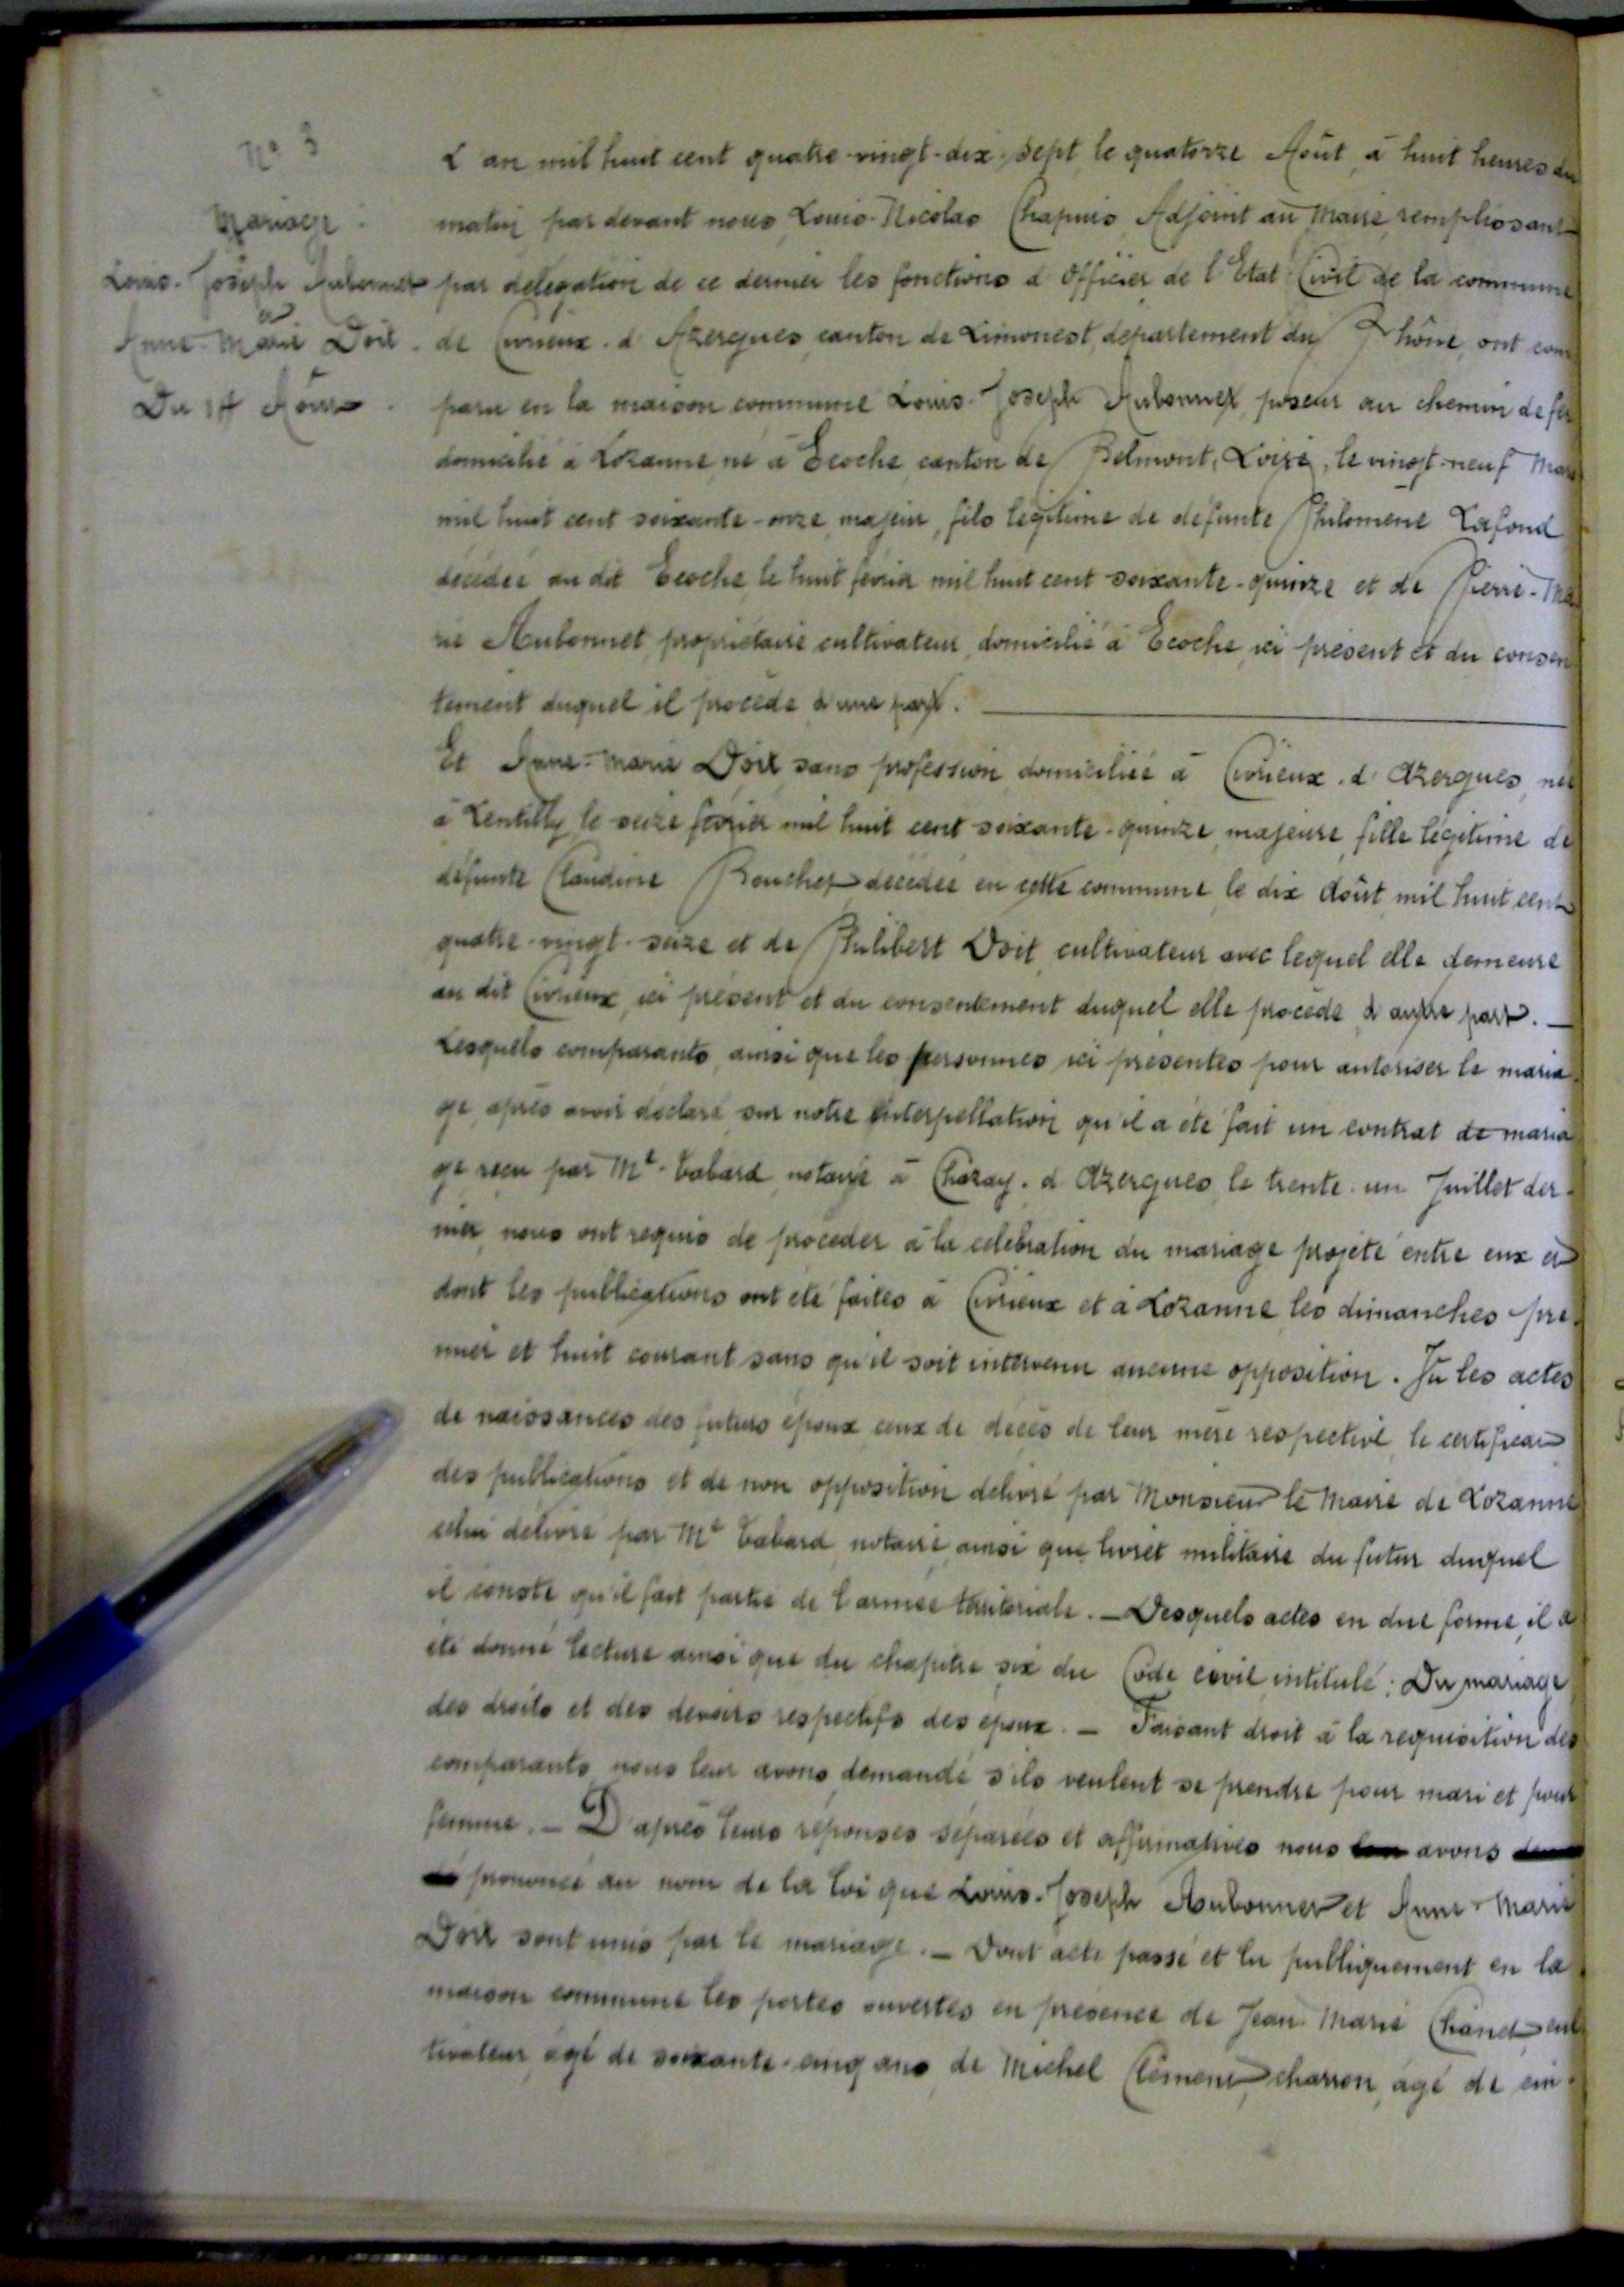 N° 3
Mariage
Louis-Joseph Aubonnet
et
Anne-Marie Doit.
Du 14 Août
L'an mil huit cent quatre-vingt-dix-sept, le quatorze Août, à huit heures du
matin, par devant nous Louis-Nicolas Chapuis, Adjoint au Maire, remplissant
par délégation de ce dernier les fonctions d'Officier de l'Etat-Civil de la commune
de Civrieux-d'Azergues, canton de Limonest, département du Rhône, ont com
paru en la maison commune Louis-Joseph Aubonnet, poseur au chemin de fer
domicilié à Lozanne, né à Ecoche, canton de Belmont, Loire, le vingt-neuf Mars
mil huit cent soixante-onze, majeur, fils légitime de défunte Philomène Lafond
décédée au dit Ecoche le huit février mil huit cent soixante-quinze et de Pierre-Ma
rie Aubonnet, propriétaire cultivateur, domicilié à Ecoche, ici présent et du consen
tement duquel il procède d'une part.
Et Anne-Marie Doit sans profession, domiciliée à Civrieux-d'Azergues, née
à Lentilly, le seize février mil huit cent soixante-quinze, majeure, fille légitime de
défunte Claudine Bouchet décédée en cette commune le dix Août mil huit cent
quatre-vingt-seize et de Philibert Doit, cultivateur avec lequel elle demeure
au dit Civrieux, ici présent et du consentement duquel elle procède d'autre part. —
Lesquels comparants, ainsi que les personnes ici présentes pour autoriser le maria
ge, après avoir déclaré, sur notre interpellation qu'il a été fait un contrat de maria
ge reçu par Me Tabard, notaire à Chazay-d'Azergues, le trente-un Juillet der-
nier, nous ont requis de procéder à la célébration du mariage projeté entre eux et
dont les publications ont été faites à Civrieux et à Lozanne les dimanches pre-
mier et huit courant sans qu'il soit intervenu aucune opposition. Vu les actes
de naissances des futurs époux, ceux de décès de leur mère respective, le certificat
des publications et de non opposition délivré par Monsieur le Maire de Lozanne
celui délivré par Me Tabard, notaire, ainsi que livret militaire du futur duquel
il conste qu'il fait partie de l'armée territoriale. — Desquels actes en due forme, il a
été donné lecture ainsi que du chapitre six du Code civil intitulé : Du mariage
des droits et des devoirs respectifs des époux. — Faisant droit à la réquisition des
comparants, nous leur avons demandé s'ils veulent se prendre pour mari et pour
femme. — D'après leurs réponses séparées et affirmatives nous avons
prononcé au nom de la loi que Louis-Joseph Aubonnet et Anne-Marie
Doit sont unis par le mariage. — Dont acte passé et lu publiquement en la
maison commune les portes ouvertes en présence de Jean-Marie cul
tivateur, âgé de soixante-cinq ans, de Michel Clément charron, âgé de cin-